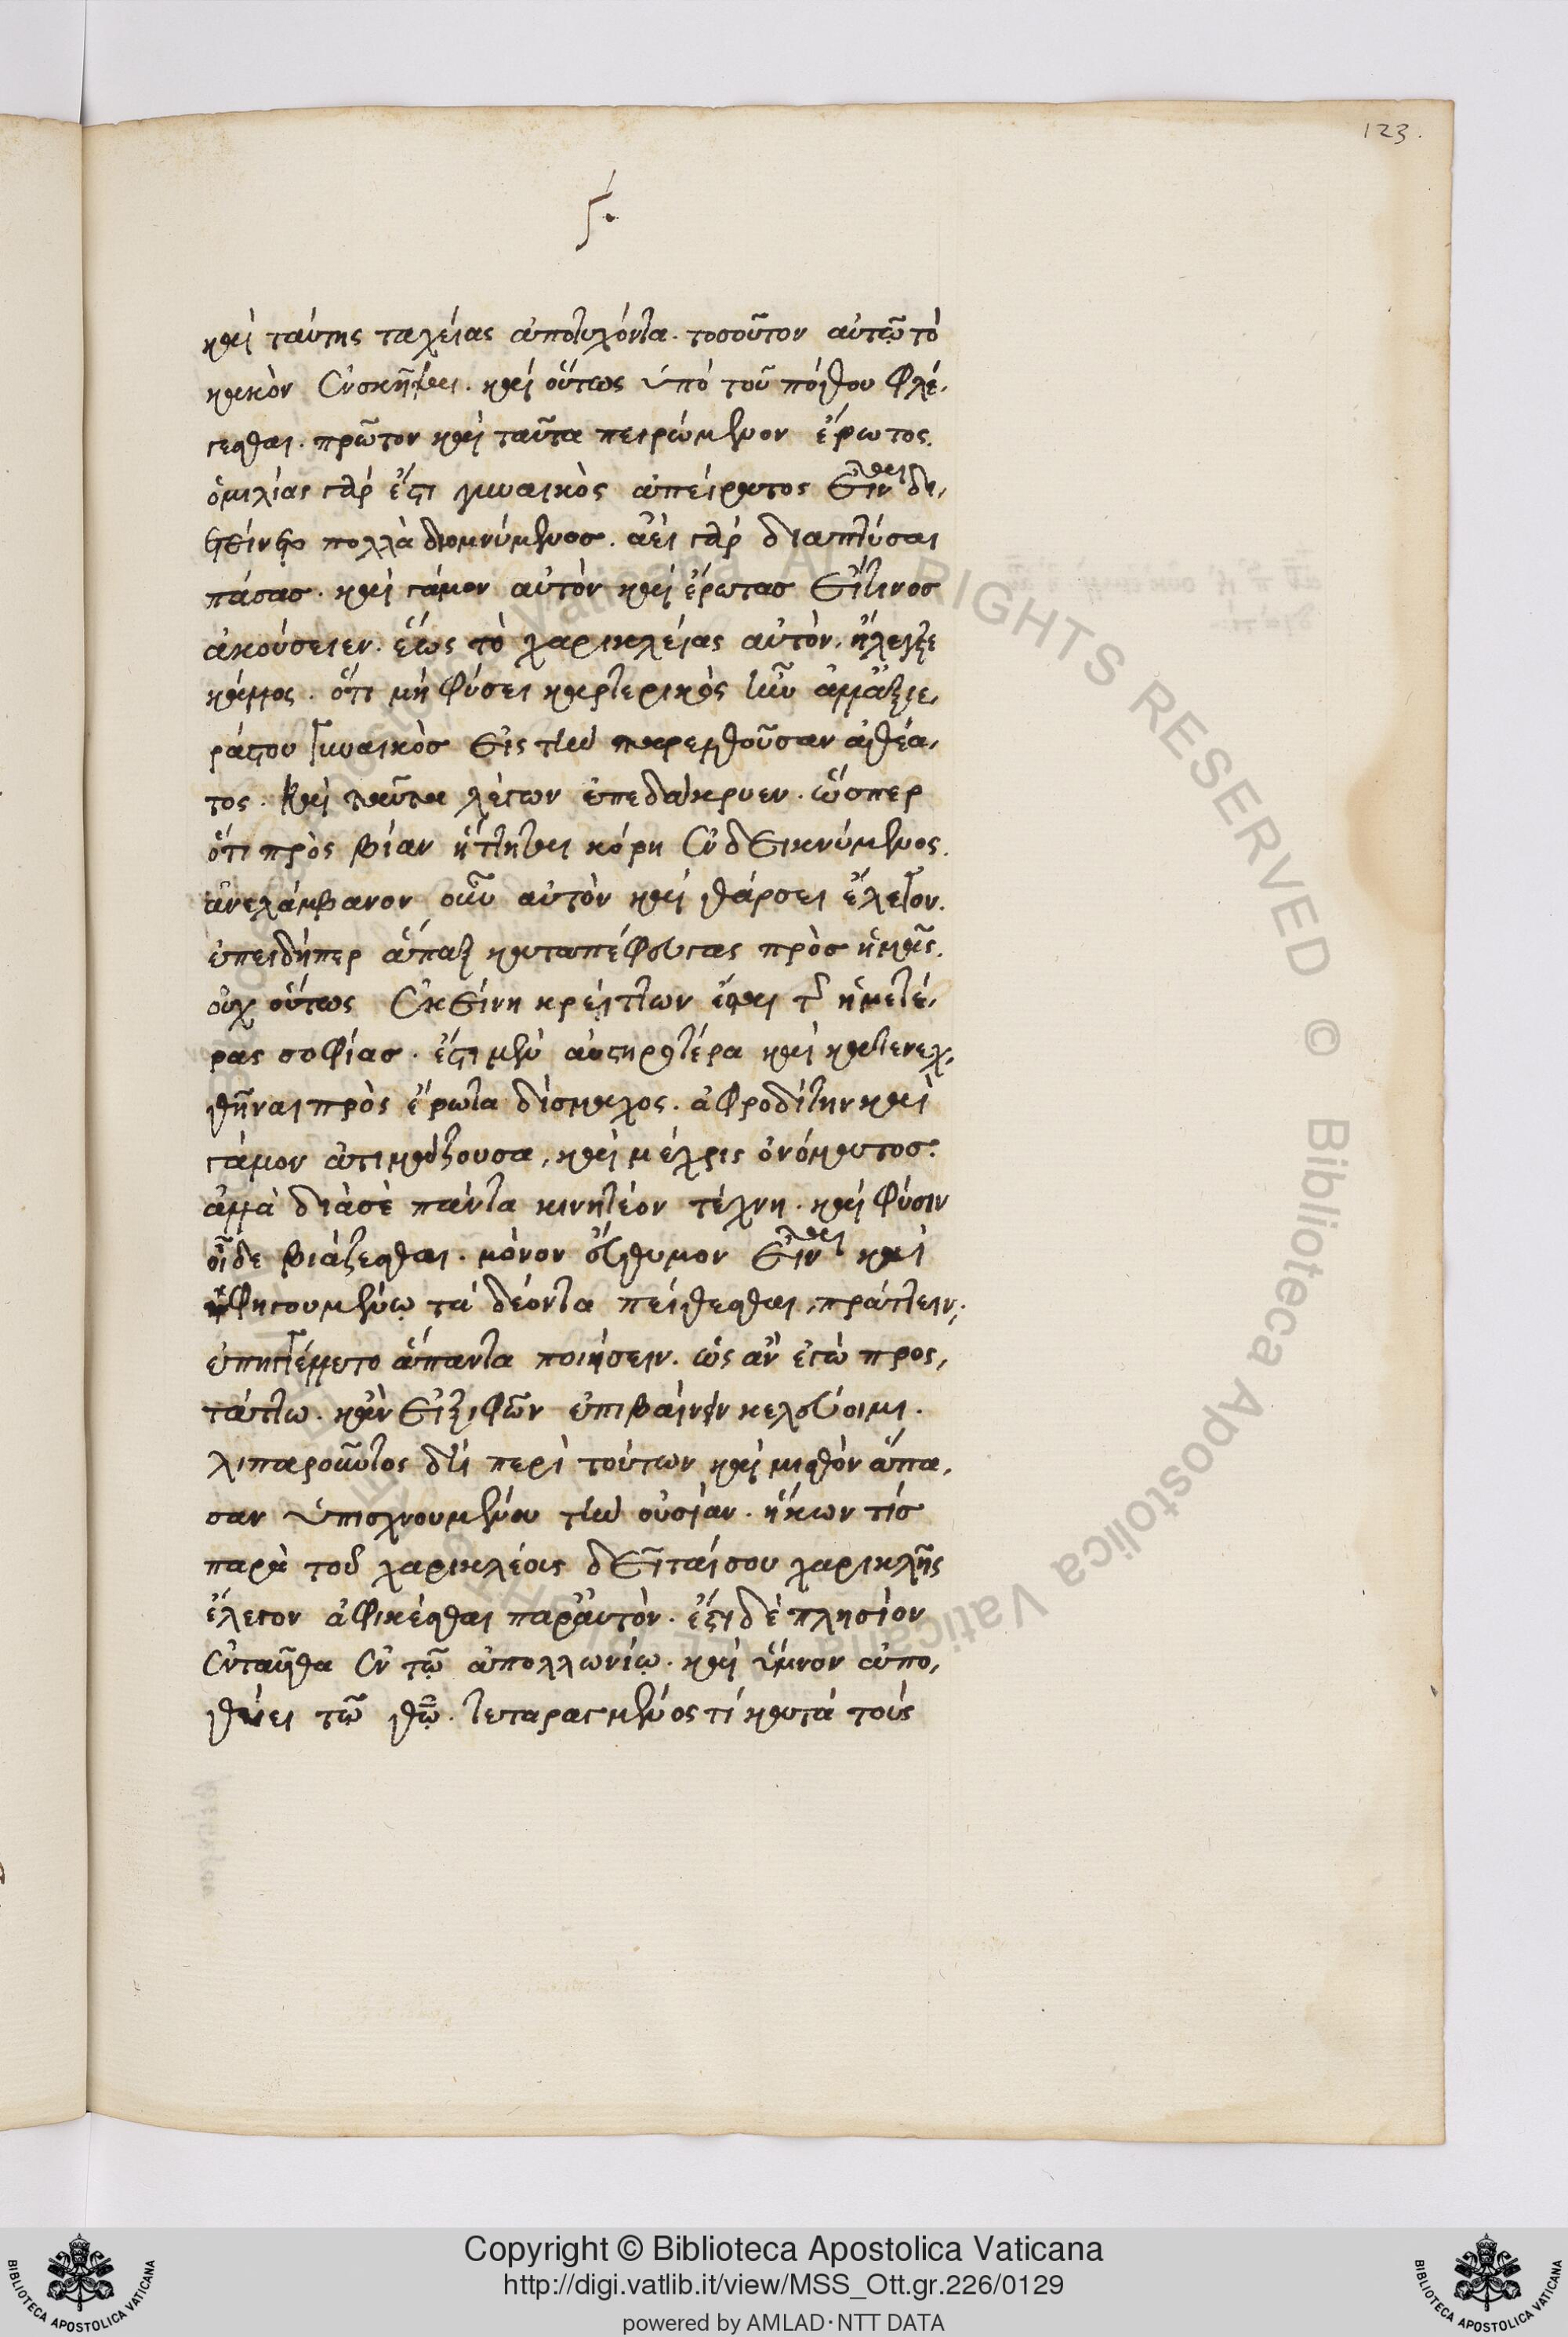 123.
ϛʹ.
καὶ ταύτης ταχείας ἀποτυχόντα. τοσοῦτον αὐτῷ τὸ
κακὸν ἐνσκῆψαι. καὶ οὕτως ὑπὸ τοῦ πόθου φλέ,
γεσθαι. πρῶτον καὶ ταῦτα πειρώμενον ἔρωτος.
ὁμιλίας γὰρ ἔτι γυναικὸς ἀπείρατος εἶναι δι,
ετείνετο πολλὰ διομνύμενος. ἀεὶ γὰρ διαπτύσαι
πάσας. καὶ γάμον αὐτὸν καὶ ἔρωτας εἴ τινος
ἀκούσειεν. ἕως τὸ χαρικλείας αὐτὸν. ἤλεγξε
κάλλος. ὅτι μὴ φύσει καρτερικὸς ἦν ἀλλ' ἀξιε,
ράστου γυναικὸς εἰς τὴν παρελθοῦσαν ἀθέα,
τος. καὶ ταῦτα λέγων ἐπεδάκρυεν. ὥσπερ
ὅτι πρὸς βίαν ἥττηται κόρη ἐνδεικνύμενος.
ἀνελάμβανον οὖν αὐτὸν καὶ θάρσει ἔλεγον.
ἐπειδήπερ ἅπαξ καταπέφευγας πρὸς ἡμᾶς.
οὐχ οὕτως ἐκείνη κρείττων ἔσται τῆς ἡμετέ,
ρας σοφίας. ἔστι μὲν αὐστηροτέρα καὶ κατενεχ,
θῆναι πρὸς ἔρωτα δύσμαχος. ἀφροδίτην καὶ
γάμον ἀτιμάζουσα, καὶ μέχρις ὀνόματος.
ἀλλὰ διὰ σὲ πάντα κινητέον τέχνη. καὶ φύσιν
οἶδε βιάζεσθαι. μόνον εὔθυμον εἶναι καὶ
ὑφηγουμένῳ τὰ δέοντα πείθεσθαι, πράττειν.
ἐπηγγέλλετο ἅπαντα ποιήσειν. ὡς ἂν ἐγὼ προς,
τάττω. κἂν εἰ ξιφῶν ἐπιβαίνειν κελεύοιμι.
λιπαροῦντος δή τι περὶ τούτων καὶ μισθὸν ἅπα,
σαν ὑπισχνουμένου τὴν οὐσίαν. ἥκων τίς
παρὰ τοῦ χαρικλέους δεῖταί σου χαρικλῆς
ἔλεγον ἀφικέσθαι παρ' αὐτὸν. ἔστι δὲ πλησίον
ἐνταῦθα ἐν τῷ ἀπολλωνίῳ. καὶ ὕμνον ἀπο,
θύει τῷ θεῷ. τεταραγμένος τί κατὰ τοὺς
Copyright © Biblioteca Apostolica Vaticana
http://digi.vatlib.it/view/MSS_Ott.gr.226/0129
powered by AMLAD·NTT DATA